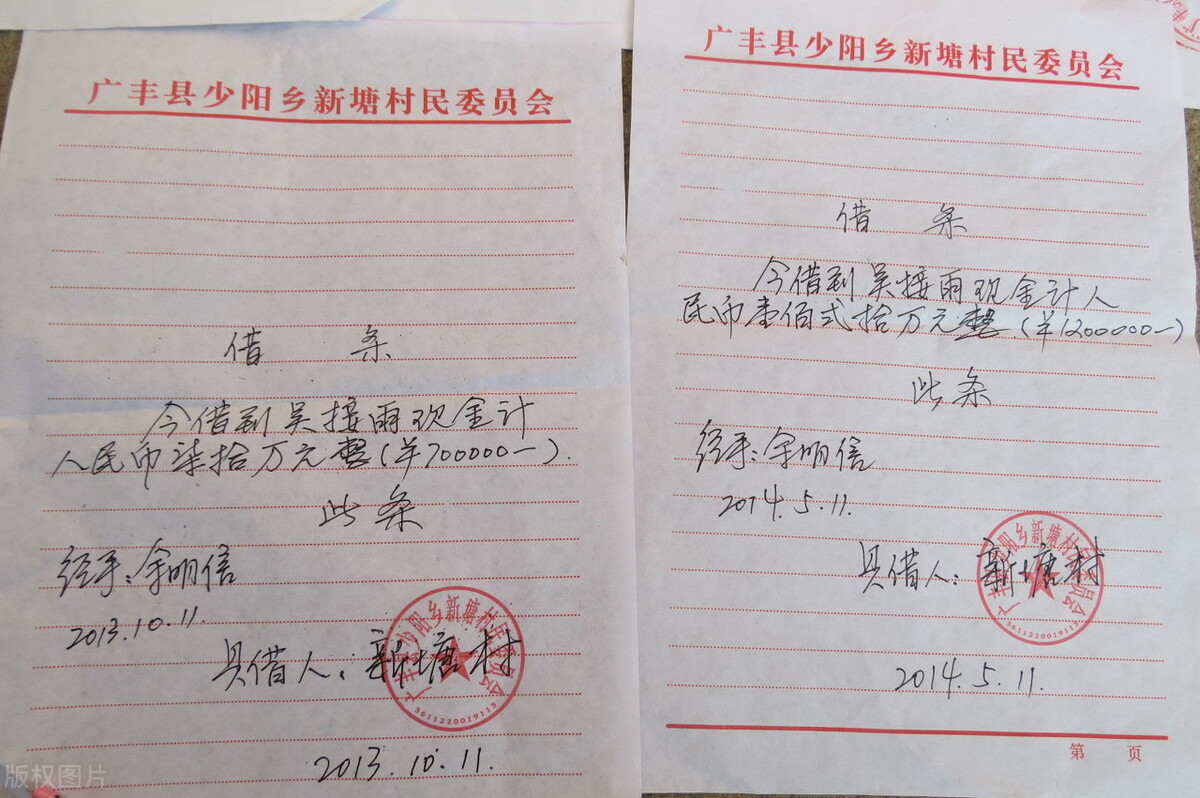 广丰县少阳乡新塘村民委员会
借 条
今借到吴接雨现金计
人民币柒拾万元整(羊700000一).
此条
经手:余明信
2013.10.11.
具借人:新塘村
广丰县少阳乡新塘村民委员会
3611220019113
2013.10.11.
广丰县少阳乡新塘村民委员会
借 条
今借到吴接雨现金计人
民币壹佰弍拾万元整(羊1200000一)
此条
经手:余明信
2014.5.11.
具借人:新塘村
广丰县少阳乡新塘村民委员会
3611220019113
2014.5.11.
第 页
版权图片